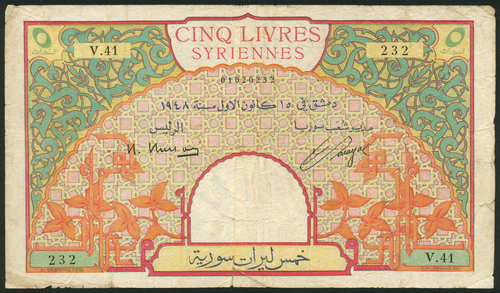 CINQ LIVRES
SYRIENNES
V.41
232
01020232
دمشق في ١٥ كانون الاول سنة ١٩٤٨
الرئيس
مدير شعب سوريا
232
V.41
خمس ليرات سورية